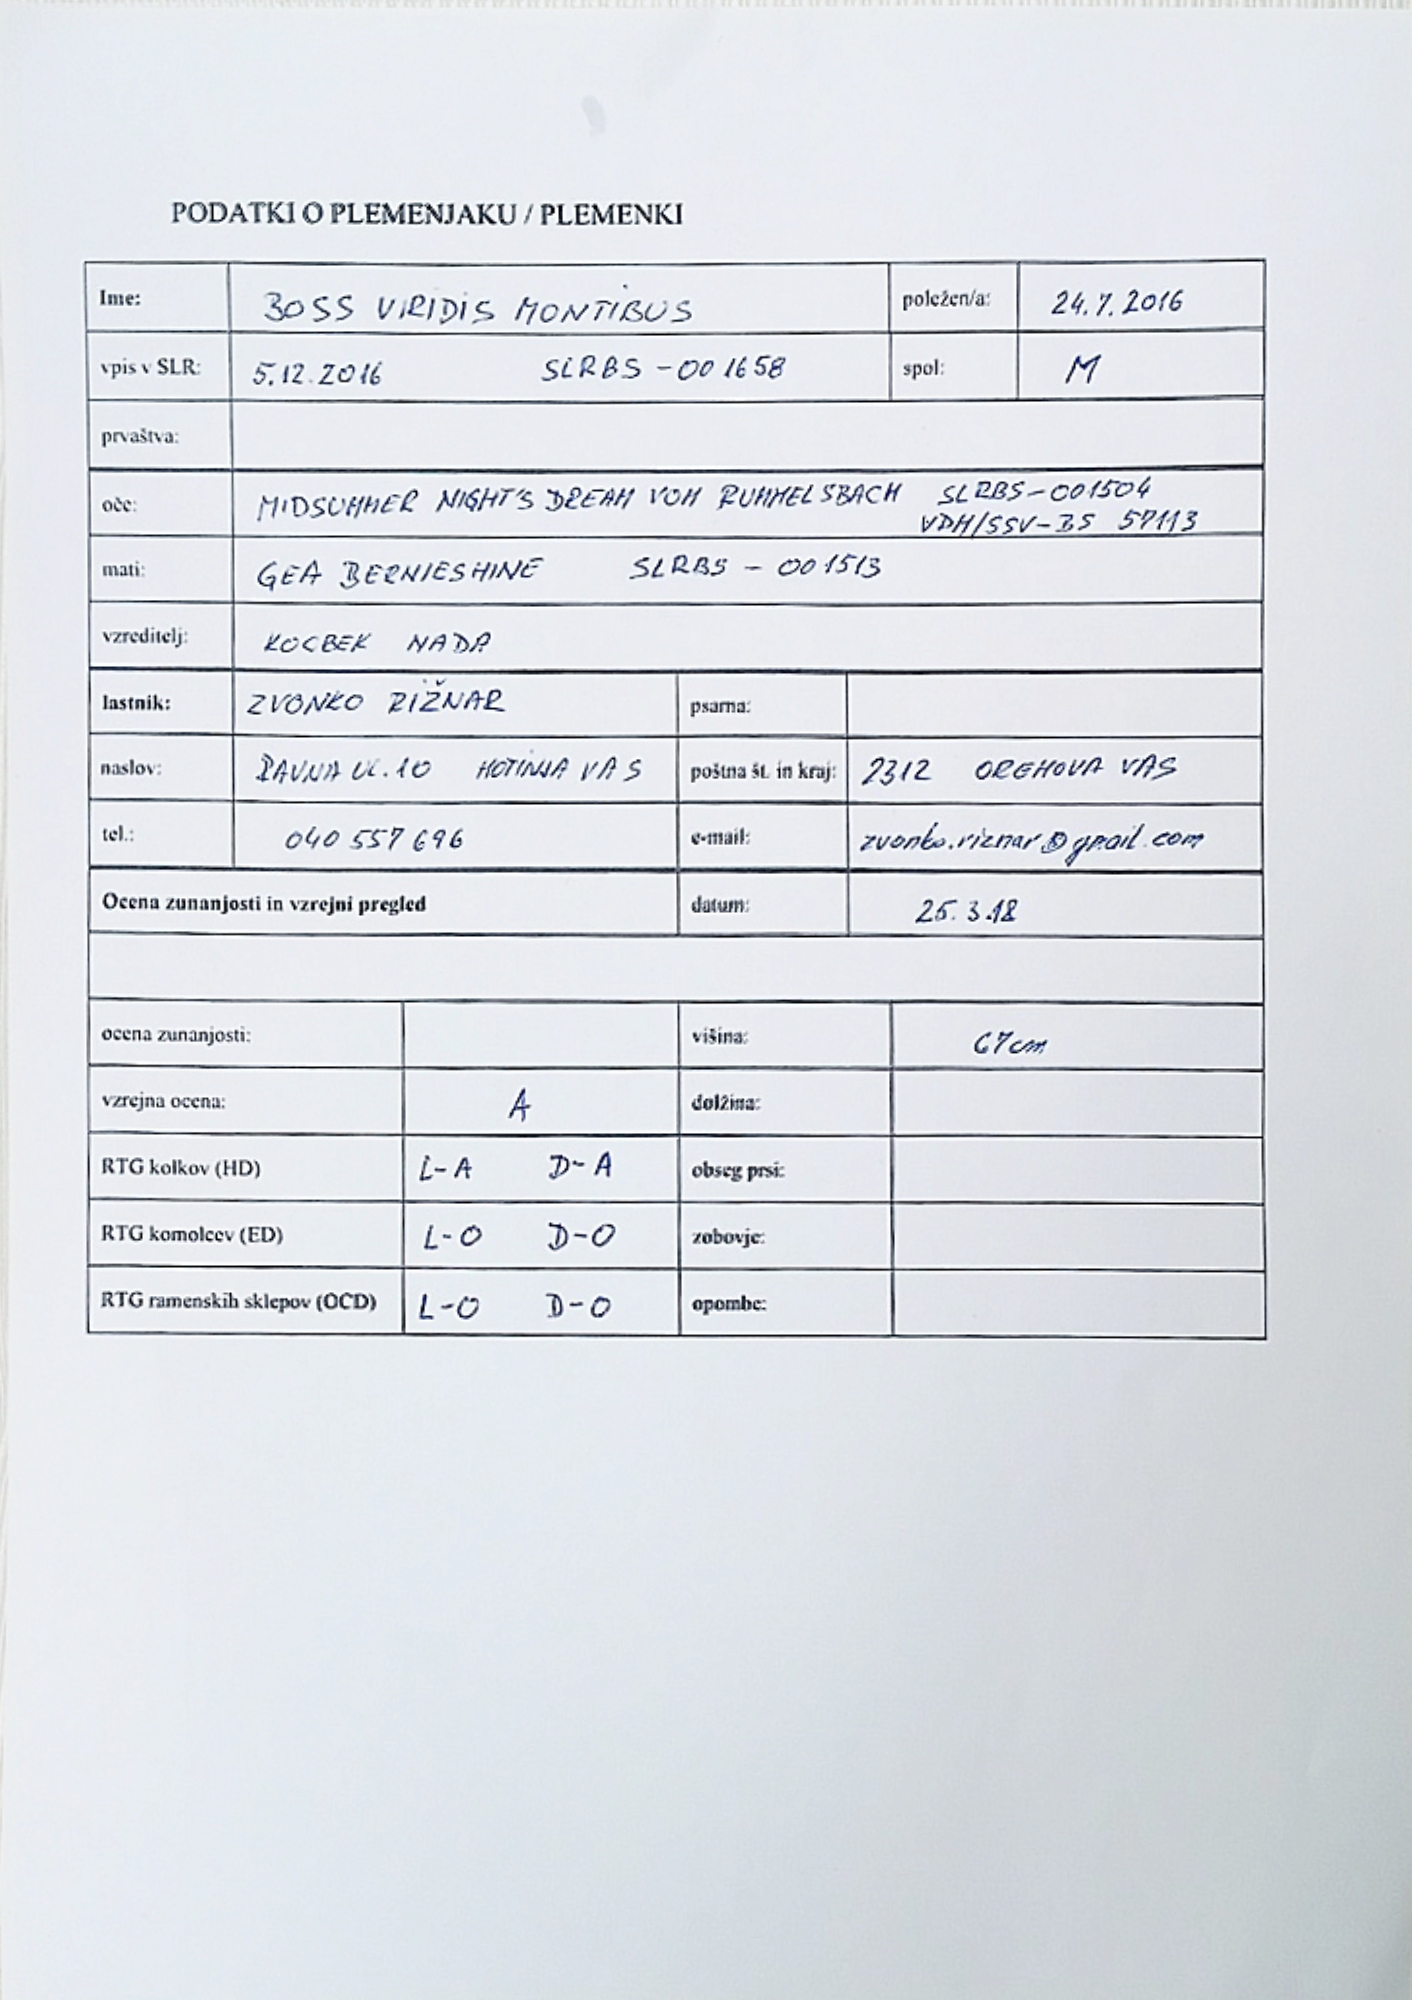 PODATKI O PLEMENJAKU / PLEMENKI
Ime: BOSS VIRIDIS MONTIBUS poležen/a: 24.7.2016
vpis v SLR: 5.12.2016 SLRBS-001658 spol: M
prvaštva:
oče: MIDSUMMER NIGHT'S DREAM VOM RUMMELSBACH SLRBS-001504
VDH/SSV-BS 57113
mati: GEA BERNIESHINE SLRBS - 001513
vzreditelj: KOCBEK NADA
lastnik: ZVONKO RIŽNAR psarna:
naslov: RAVNA UL. 10 HOTINJA VAS poštna št. in kraj: 2312 OREHOVA VAS
tel.: 040 557 696 e-mail: zvonko.riznar@gmail.com
Ocena zunanjosti in vzrejni pregled datum: 25.3.18
ocena zunanjosti: višina: 67cm
vzrejna ocena: A dolžina:
RTG kolkov (HD) L-A D-A obseg prsi:
RTG komolcev (ED) L-O D-O zobovje:
RTG ramenskih sklepov (OCD) L-O D-O opombe: